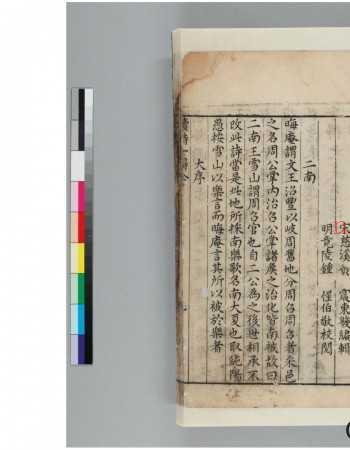 宋慈溪 震東發編輯
明竟陵鍾 惺伯敬校閱
二南
晦庵謂文王治豐以岐周舊地分周召周召者采邑
之名周公掌內治召公掌諸侯之治化皆南被故曰
二南王雪山謂周召官也自二公為之後世相承不
改此詩當是此地所採南樂歌名南大夏也取純陽
愚按雪山以樂言而晦庵言其所以被於樂者
大序
讀詩一得